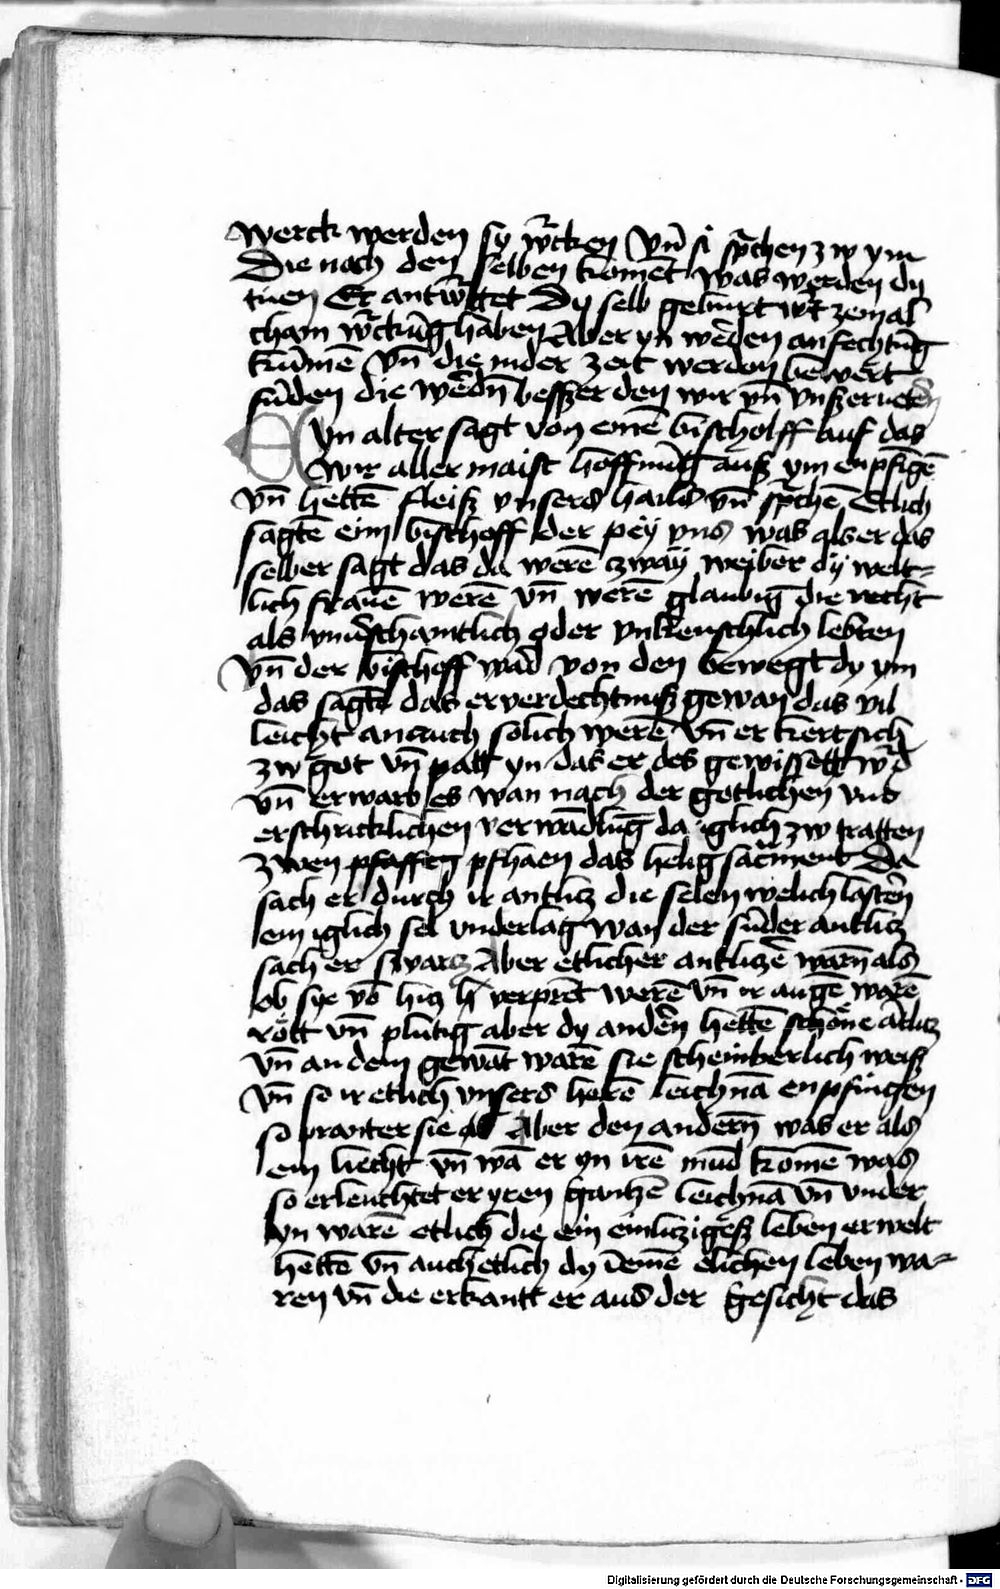 werck werden sy w̃cken Vn̄ si sp̃chen zw ym
Die nach den selben komēt was werden dy
tuen Er antw̃tet Dy selb gehurt w̃t zemal
cham w̃ckūg haben Aber yn wēden anfechtūg
kūmē vn̄ die in der zeit werden bewert
fūden die wēdn̄ besszer den wir vn̄ vnszer
Eyn alter sagt von einē bischolff auf das
wir aller maist hoffnūg ausz ym enpfigē
vn̄ hettē fleisz vnsers hails vn̄ sp̃chē Etlich
sagtē eim bischoff der pey vns was als er das
selber sagt das da werē zway weiber dy welt-
lich frauē werē vn̄ werē glaubig die nicht
als vnu̇schamtlich oder vnkeuschlich lebten
vn̄ der bischoff wad von den bewegt dy ym
das sagtē das er verdechtnusz gewan das vil
leicht an auch solich werē vn̄ er kert sich
zw got vn̄ patt yn das er des gewissett w̃d
vn̄ erwarb es wan nach der gotlichen vnd
erschricklichen verwādlūg da iglich zw tratten
zwen pfaffen pfhaen das heilig sac̃ment Da
sach er durch ir antlicz die selen welich lastēn
em iglich sel vnderlag wan der sūder antlicz
sach er swarcz Aber etlicher antliczē warn̄ als
ob sye vō hicz verprēt werē vn̄ ir augē warē
rott vn̄ plutig aber dy andēn hettē schöne ātlicz
vn̄ an dem gewāt warē sie scheinberlich weisz
vn̄ so ir etlich vnsers herē leichnā enpfingen
so pranter sie als Aber den andern̄ was er als
em liecht vn̄ wā er yn irē mūd komē was
so erleuchtet er yren gantzē leichnā vn̄ vnder
yn warē etlich die ein einlitzigesz leben erwelt
hettē vn̄ auch etlich dy īeinē elichen leben wa-
ren vn̄ die erkantt er aus der gesicht das
Digitalisierung gefördert durch die Deutsche Forschungsgemeinschaft - DFG